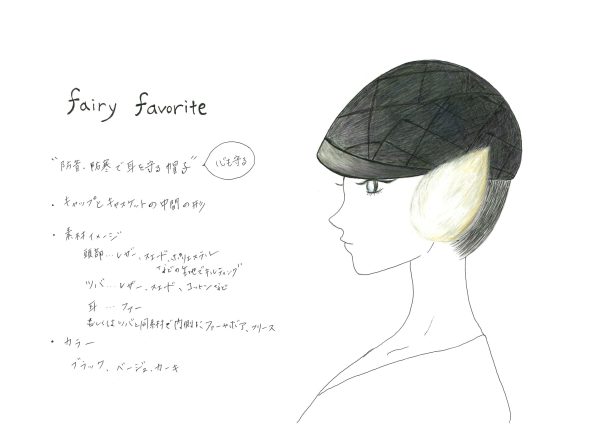 fairy favorite
"防音、防寒で身を守る帽子"
心も守る
・キャップとキャスケットの中間の形
・素材イメージ
頭部…レザー、スエード、ポリエステル
などの生地でキルティング
ツバ…レザー、スエード、コットンなど
耳…ファー
もしくはツバと同素材で内側にファーやボア、フリース
・カラー
ブラック、ベージュ、カーキ